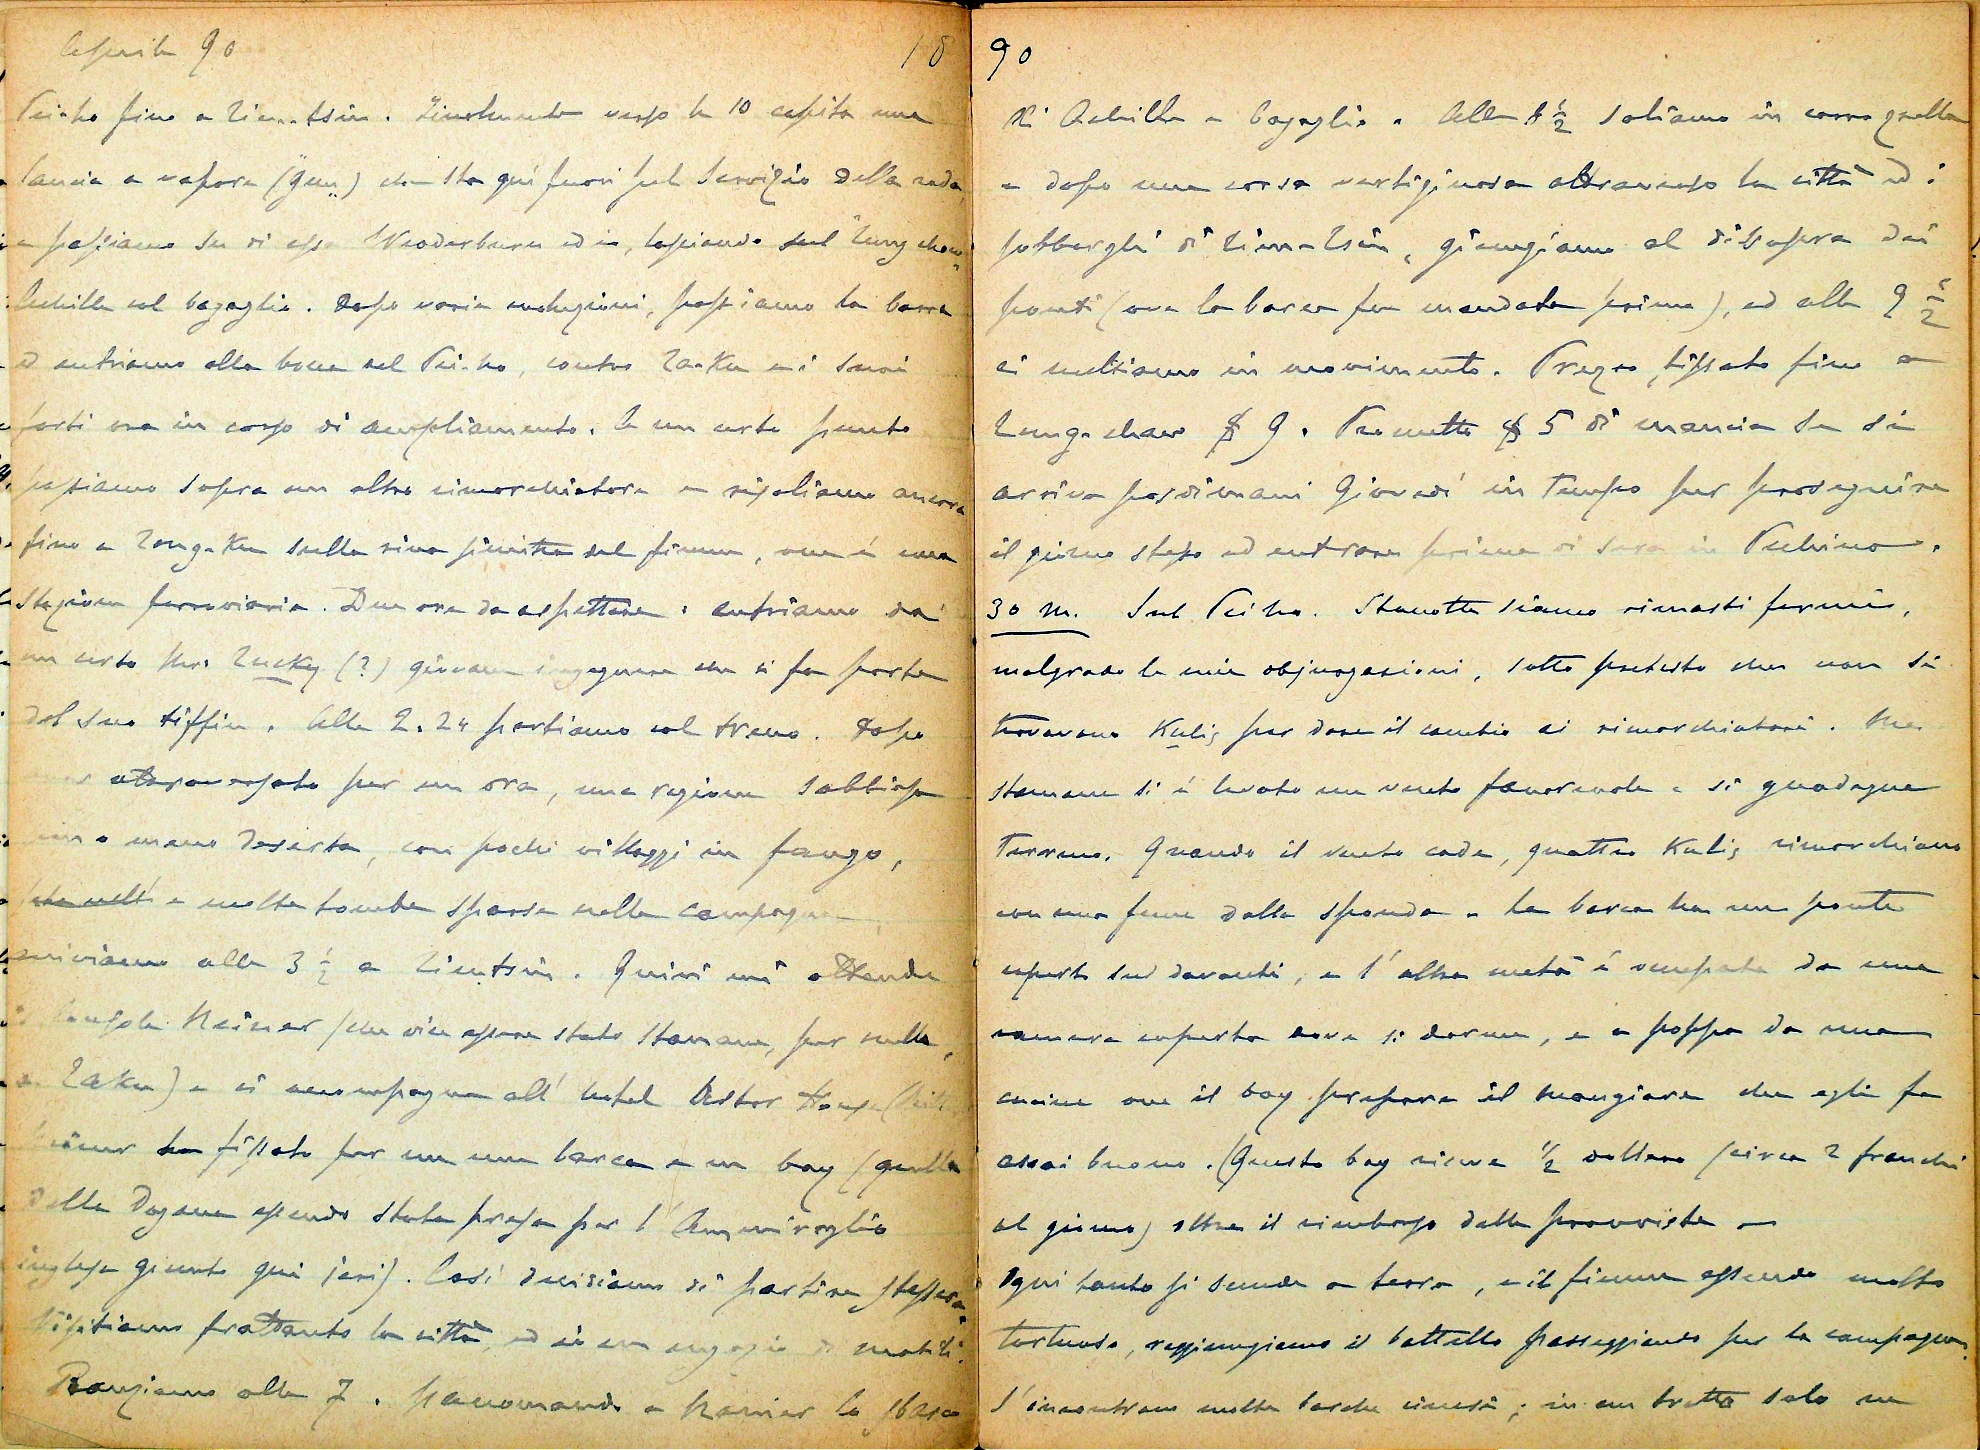 Aprile 90
18
Pei-ho fino a Tien-tsin. Finalmente verso le 10 capita una
lancia a vapore ("Gun") che sta qui fuori pel servizio della rada
e passiamo su di essa Weaderburn ed io, lasciando sul "Tungchow"
Achille col bagaglio. Dopo varie evoluzioni, passiamo la barra
ed entriamo alla bocca del Pei-ho, contro Ta-Ku e i suoi
forti ora in corso di ampliamento. A un certo punto
passiamo sopra un altro rimorchiatore e risaliamo ancora
fino a Tong-Ku sulla riva sinistra del fiume, ove è una
stazione ferroviaria. Due ore da aspettare: entriamo da
un certo Mr. Tucky (?) giovane ingegnere che ci fa parte
del suo tiffin. Alle 2.24 partiamo col treno. Dopo
aver attraversato per un ora, una regione sabbiosa
più o meno deserta, con pochi villaggi in fango,
e molte tombe sparse nella campagna
arriviamo alle 3 1/2 a Tientsin. Quivi mi attende
il console Heiner (che dice essere stato stamane, per nulla,
a Taku) e ci accompagna all'hotel Astor House
ha fissato per me una barca e un boy (quella
della Dogana essendo stata presa per l'Ammiraglio
inglese giunto qui jeri). Così decidiamo di partire stassera
Visitiamo frattanto la città, ed io un negozio di mobili.
Pranziamo alle 7.
90
di Achille e bagaglio. Alle 8 1/2 saliamo in carrozzella
e dopo una corsa vertiginosa attraverso la città ed i
sobborghi di Tien-Tsin, giungiamo al disopra dei
ponti (ove la barca fu mandata prima), ed alle 9 1/2
ci mettiamo in movimento. Prezzo fissato fino a
Tung-chao $ 9. Prometto $ 5 di mancia se si
arriva posdimani Giovedì in tempo per proseguire
il giorno stesso ed entrare prima di sera in Pechino.
30 M. Sul Pei ho. Stanotte siamo rimasti fermi,
malgrado le mie objurgazioni, sotto pretesto che non si
trovavano Kulis per dare il cambio ai rimorchiatori. Ma
stamane si è levato un vento favorevole e si guadagna
terreno. Quando il vento cade, quattro Kulis rimorchiano
con una fune dalla sponda. La barca ha un ponte
coperto sul davanti, e l'altra metà è occupata da una
camera coperta dove si dorme, e a poppa da una
cucina ove il boy prepara il mangiare che egli fa
assai buono. (Questo boy riceve 1/2 dollaro (circa 2 franchi
al giorno) oltre il rimborso delle provviste.
Ogni tanto si scende a terra, e il fiume essendo molto
tortuoso, raggiungiamo il battello passeggiando per la campagna.
S'incontrano molte barche cinesi; in un tratto solo ne